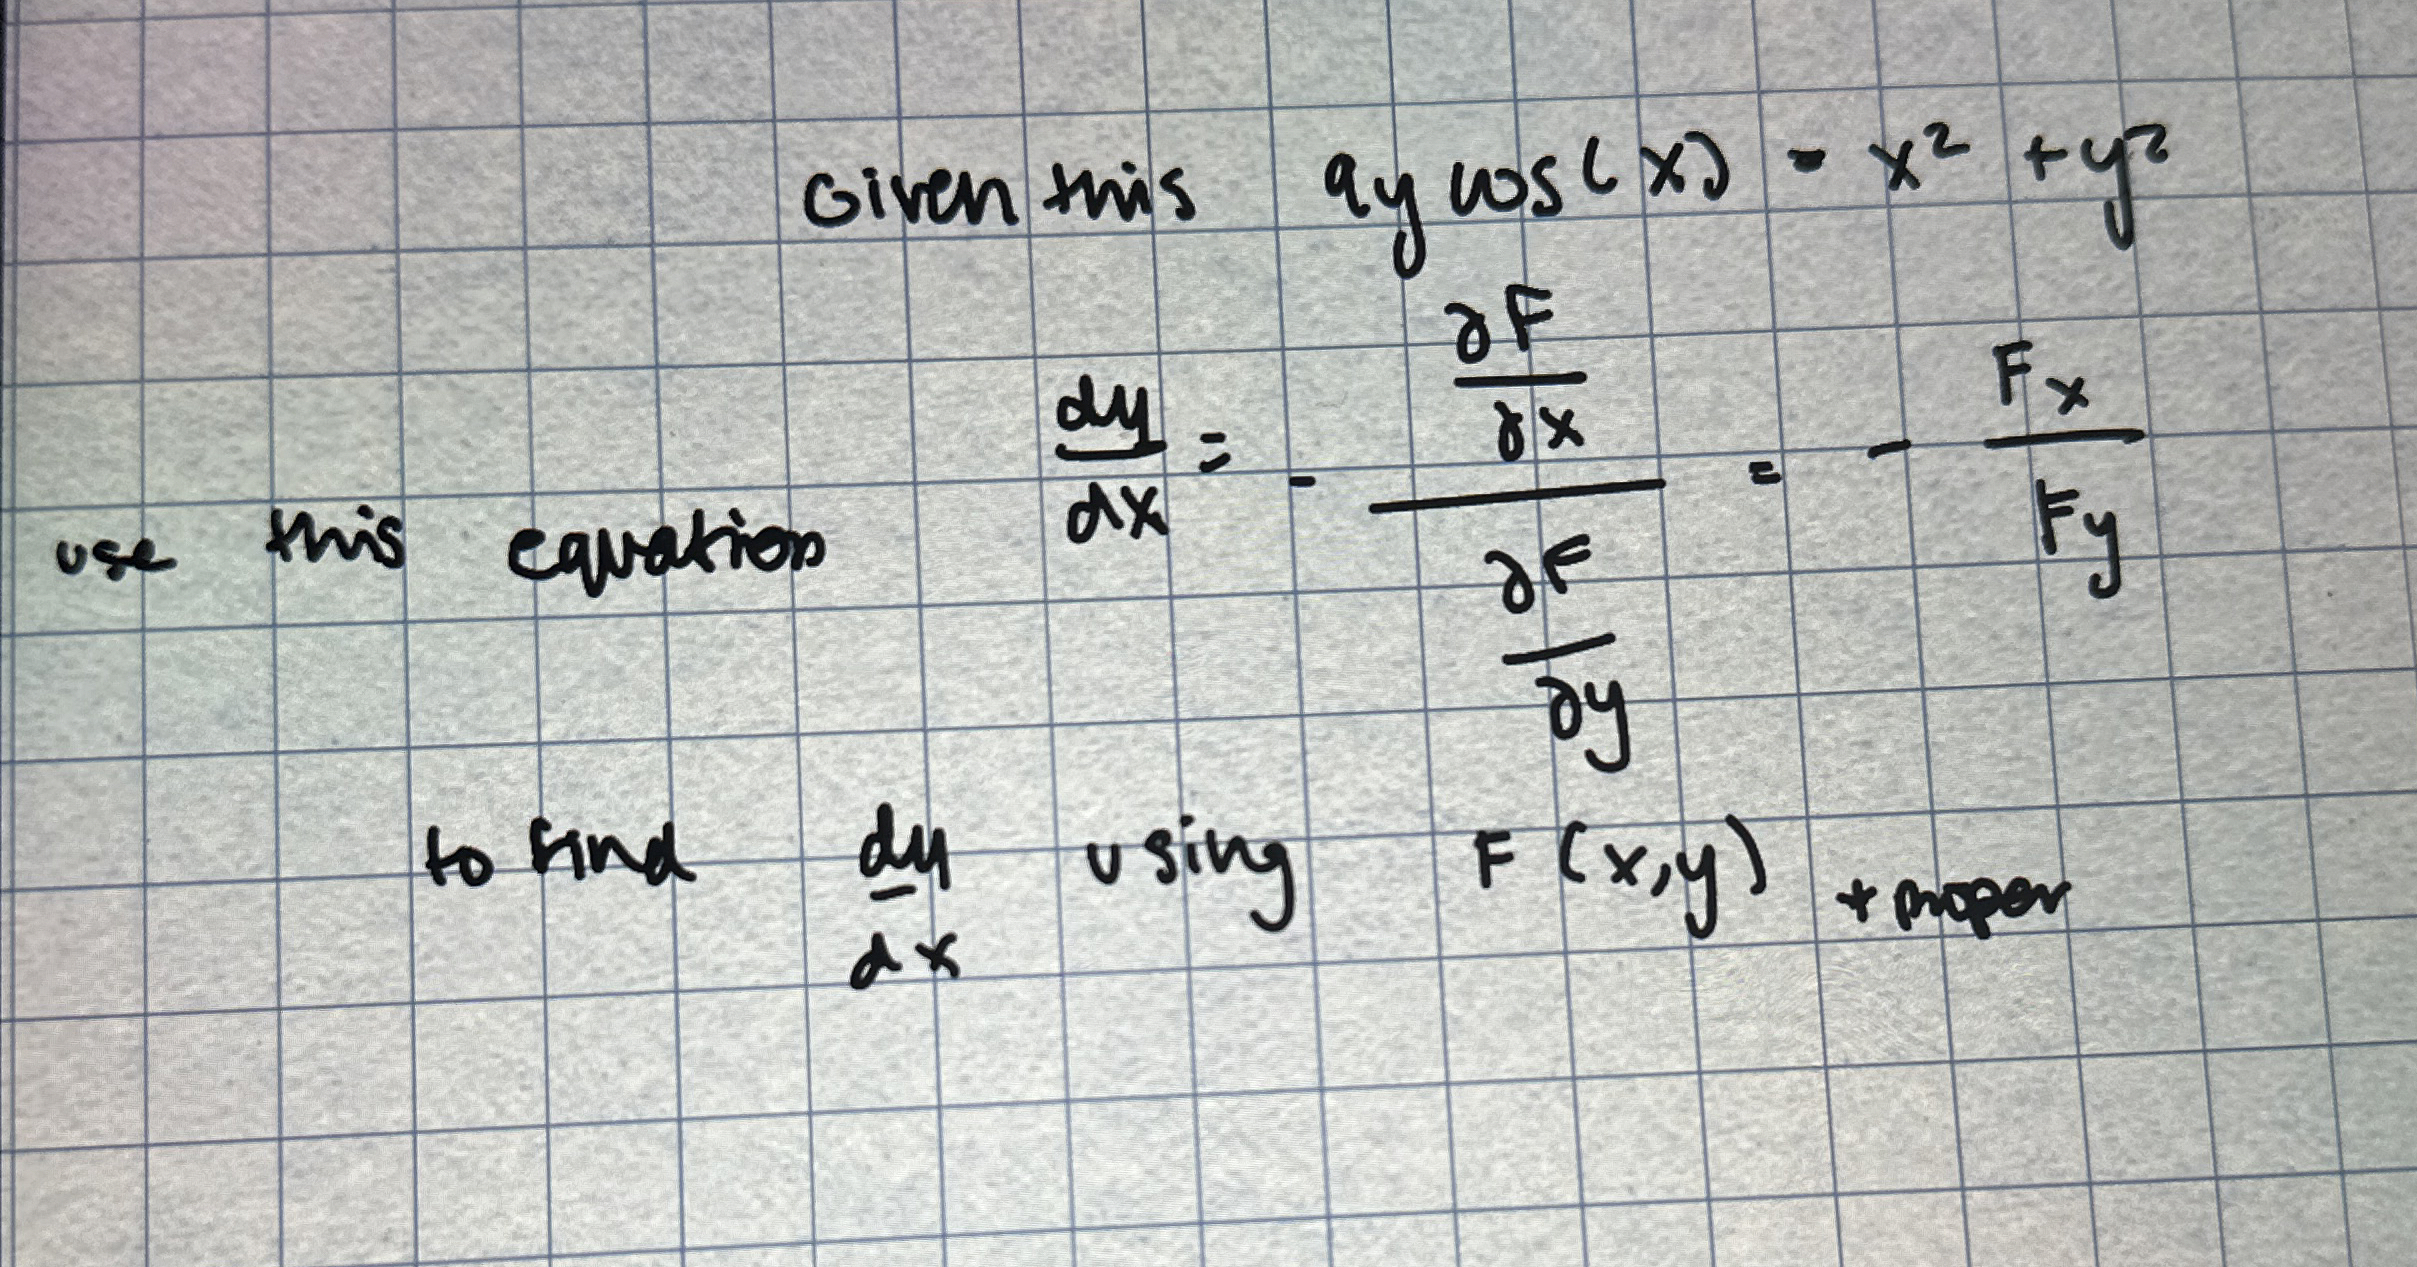 Given this 9y cos(x) = x² + y²
use this equation dy/dx = - ∂F/∂x / ∂F/∂y = - Fx/Fy
to find dy/dx using F(x,y) + proper